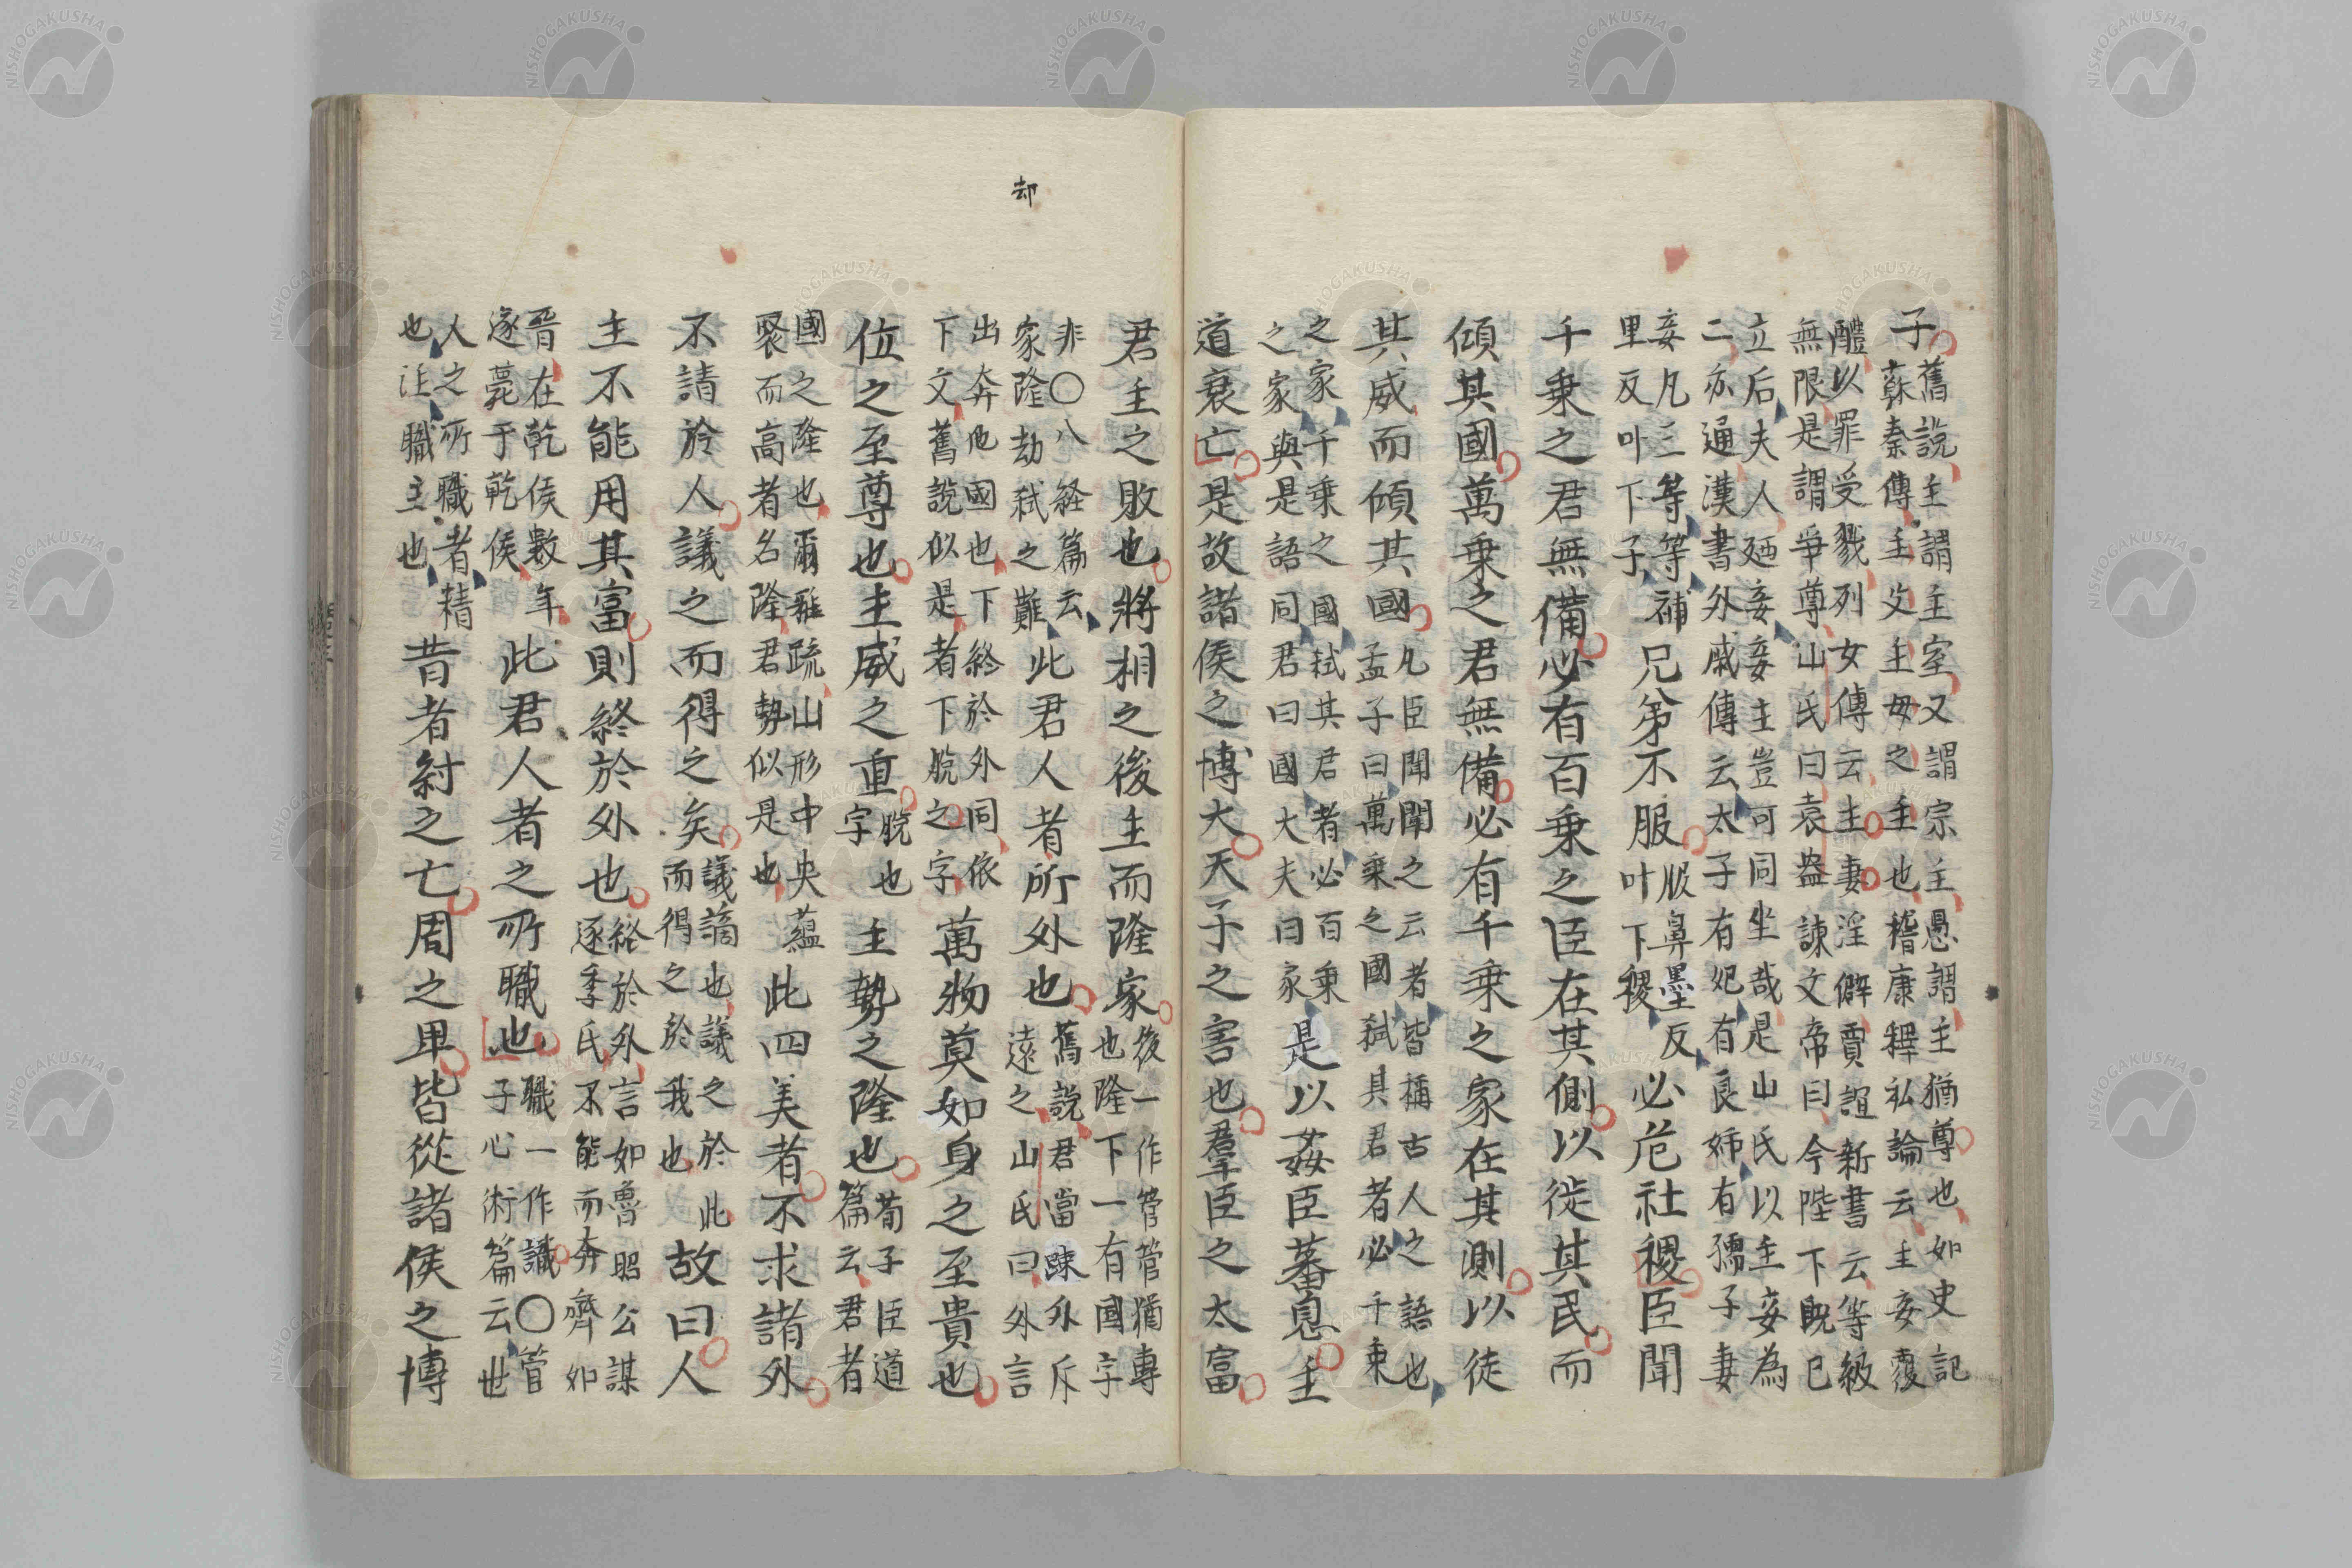 子舊說主謂主室又謂宗主愚謂主猶尊也如史記
蘇秦傳主父主母之主也嵇康釋私論云主妾覆
醴以罪受戮列女傳云主妻淫僻賈誼新書云等級
無限是謂爭尊山氏曰袁盎諫文帝曰今陛下既已
立后夫人廼妾妾主豈可同坐哉是山氏以主妾為
二亦通漢書外戚傳云太子有妃有良娣有孺子妻
妾凡三等等補兄弟不服服鼻墨反必危社稷臣聞
里反叶下子叶下稷
千乘之君無備必有百乘之臣在其側以徙其民而
傾其國萬乘之君無備必有千乘之家在其測以徒
其威而傾其國凡臣聞聞之云者皆稱古人之語也
孟子曰萬乘之國弑其君者必千乘
之家千乘之國弑其君者必百乘是以姦臣蕃息主
之家與是語同君曰國大夫曰家
道衰亡是故諸侯之博大天子之害也羣臣之太富
君主之敗也將相之後主而隆家後一作管管猶專
也隆下一有國字
非〇八經篇云此君人者所外也舊說君當疎外斥
家隆劫弑之難遠之山氏曰外言
出奔他國也下終於外同依萬物莫如身之至貴也
下文舊說似是者下脫之字
位之至尊也主威之重脫也主勢之隆也荀子臣道
字篇云君者
國之隆也爾雅疏山形中央蘊此四美者不求諸外
褁而高者名隆君勢似是也
不請於人議之而得之矣議謫也議之於此故曰人
而得之於我也
主不能用其富則終於外也終於外言如魯昭公謀
逐季氏不能而奔齊如
晉在乾侯數年此君人者之所職也職一作識〇管
遂薨于乾侯子心術篇云世
人之所職者精昔者紂之亡周之卑皆從諸侯之博
也注職主也
却
NISHOGAKUSHA